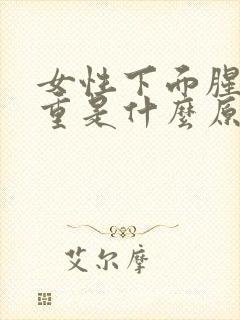 女性下面腥
重是什麼原
艾尔摩